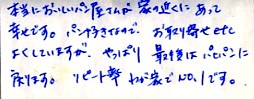 本当においしいパン屋さんが家の近くにあって
幸せです。パン好きなので、お取り寄せetc
よくしていますが、やっぱり最後はパパンに
戻ります。リピート率わが家でNO.1です。